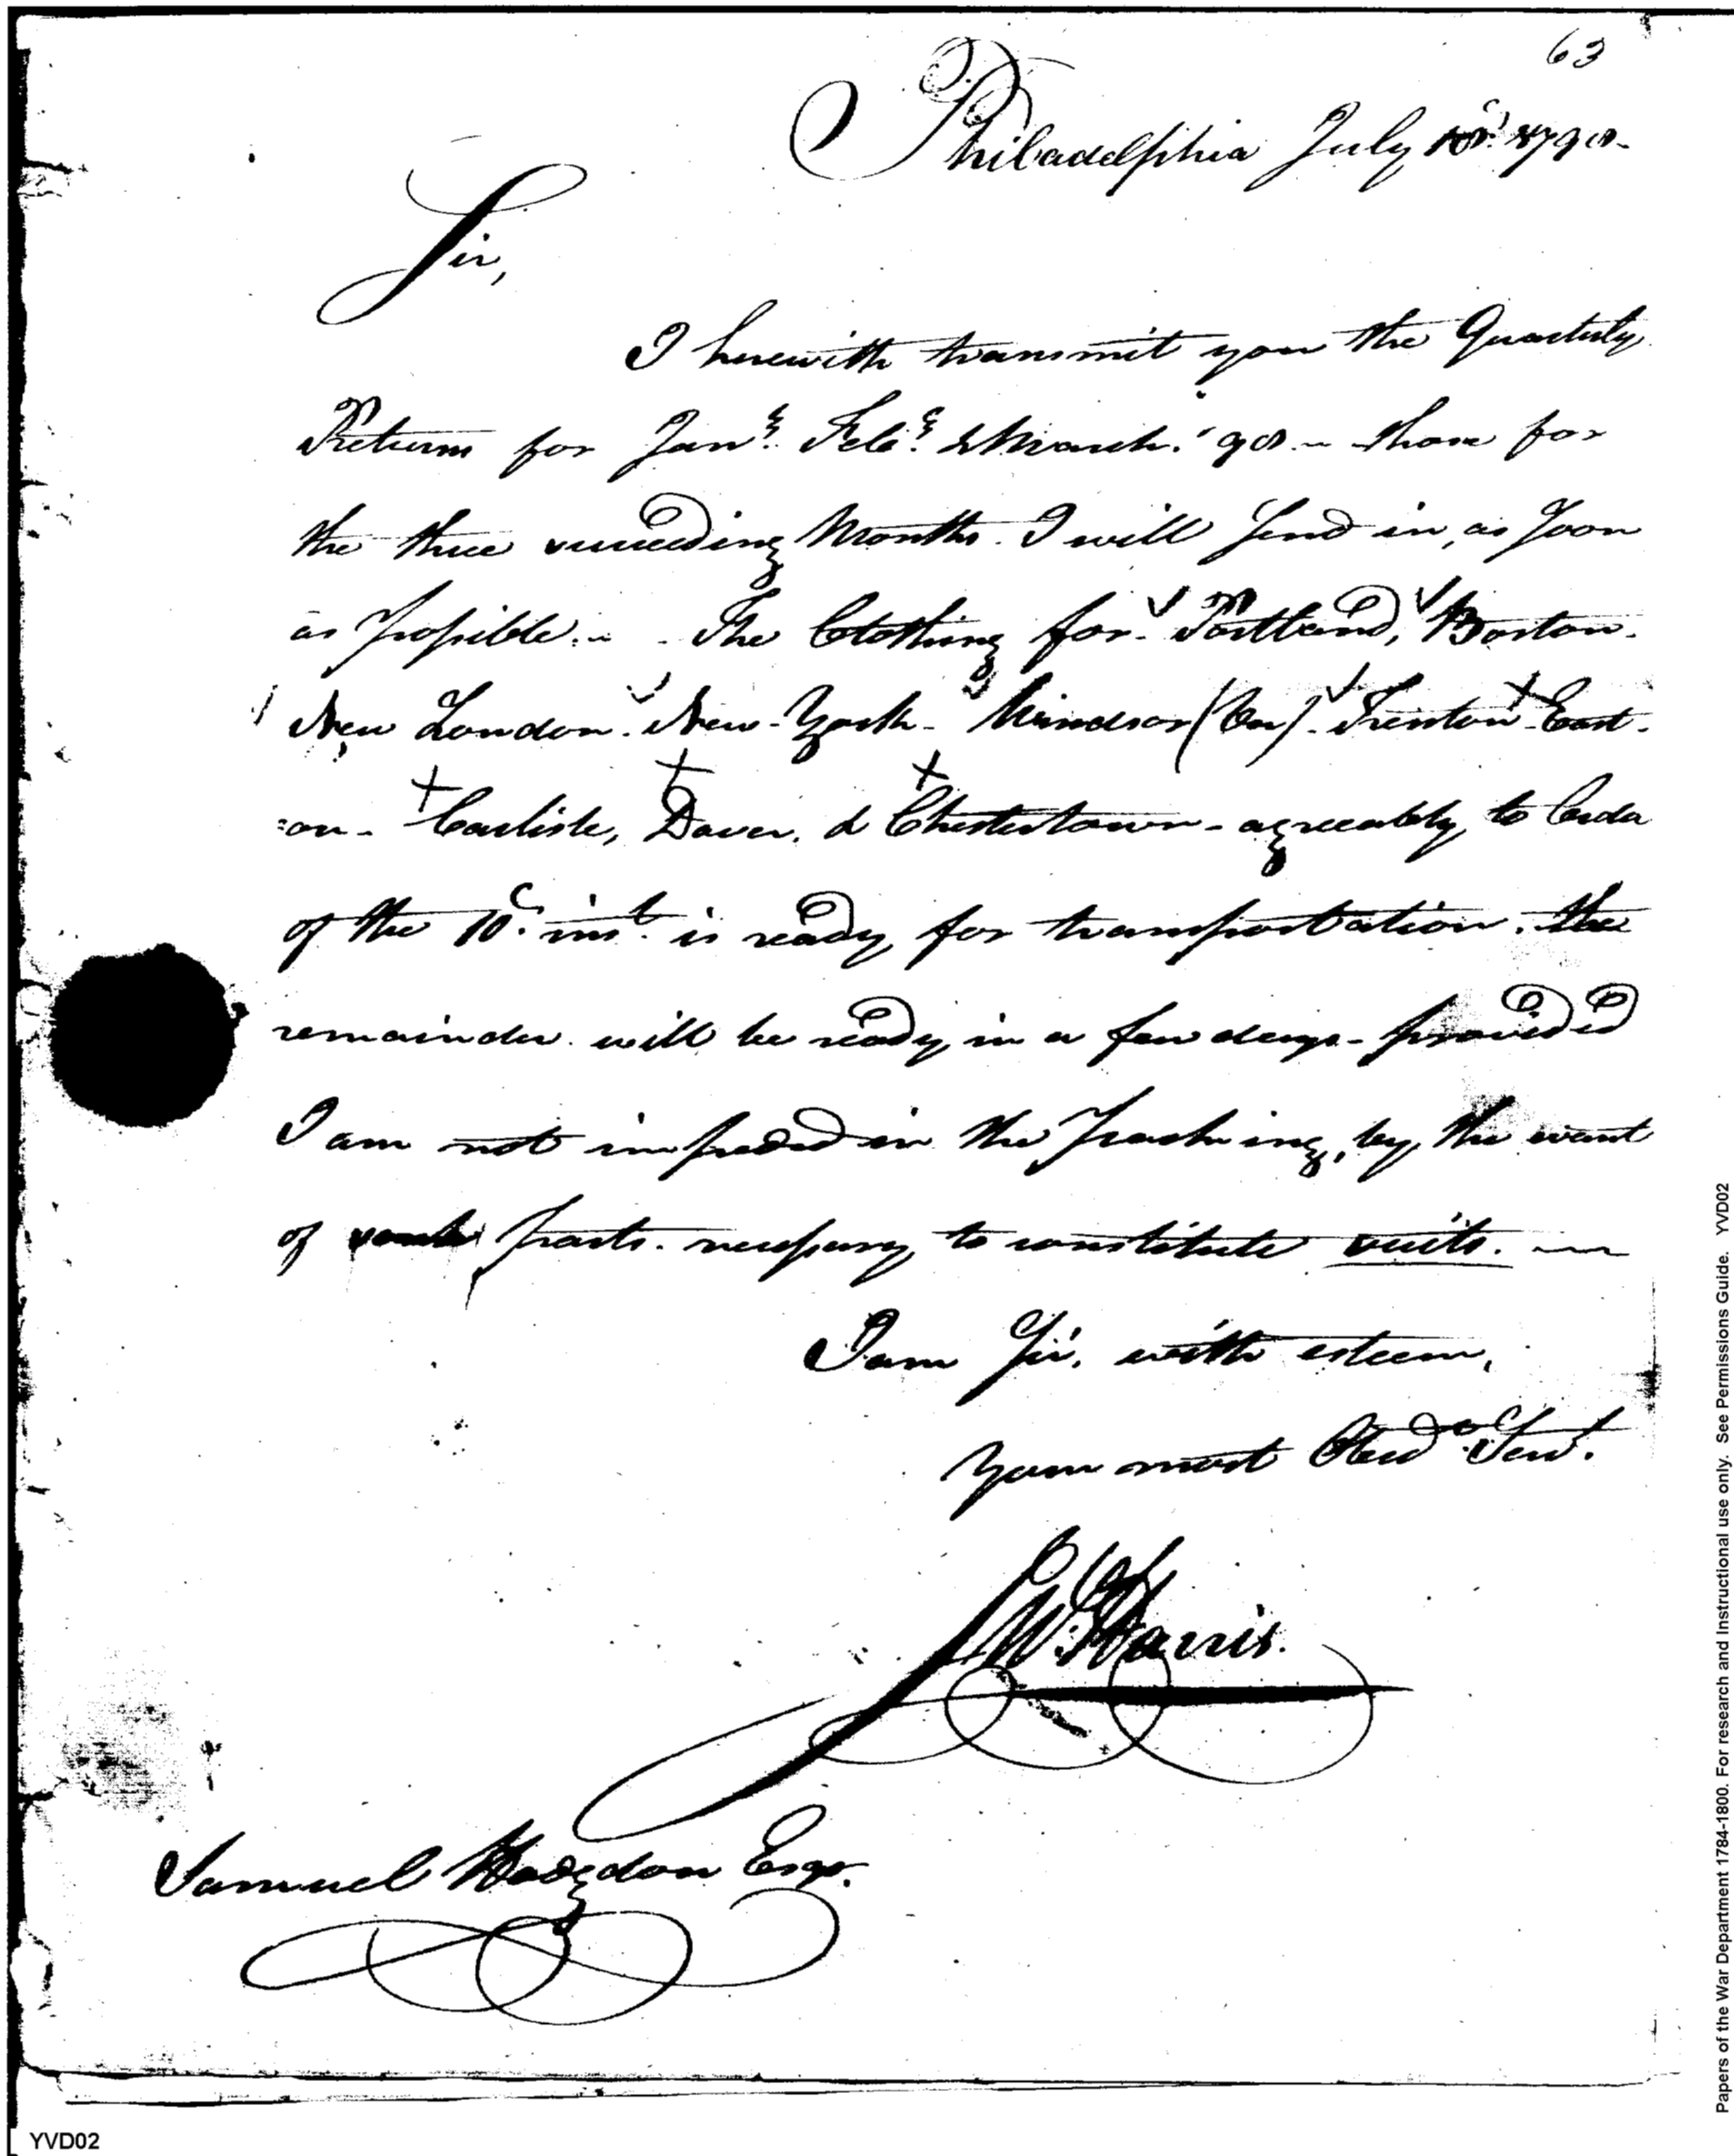 63
Philadelphia July 1798.
Sir,
I herewith transmit you the Quarterly
Returns for Jany. Feby. & March. '98 – those for
the three succeeding Months. I will send in, as soon
as possible. – The Clothing for Portland, Boston.
New London. New-York. Windsor (Con). Trenton East-
=on. Carlisle, Dover. & Chestertown – agreeably to Order
of the 10th. inst. is ready for transportation. the
remainder will be ready in a few days – provided
I am not impeded in the packing, by the want
of some parts. necessary to constitute suits. –
I am Sir. with esteem,
Your most Obed Servt.
W. Harris.
Samuel Hodgdon Esqr.
YVD02
Papers of the War Department 1784-1800. For research and instructional use only. See Permissions Guide. YVD02